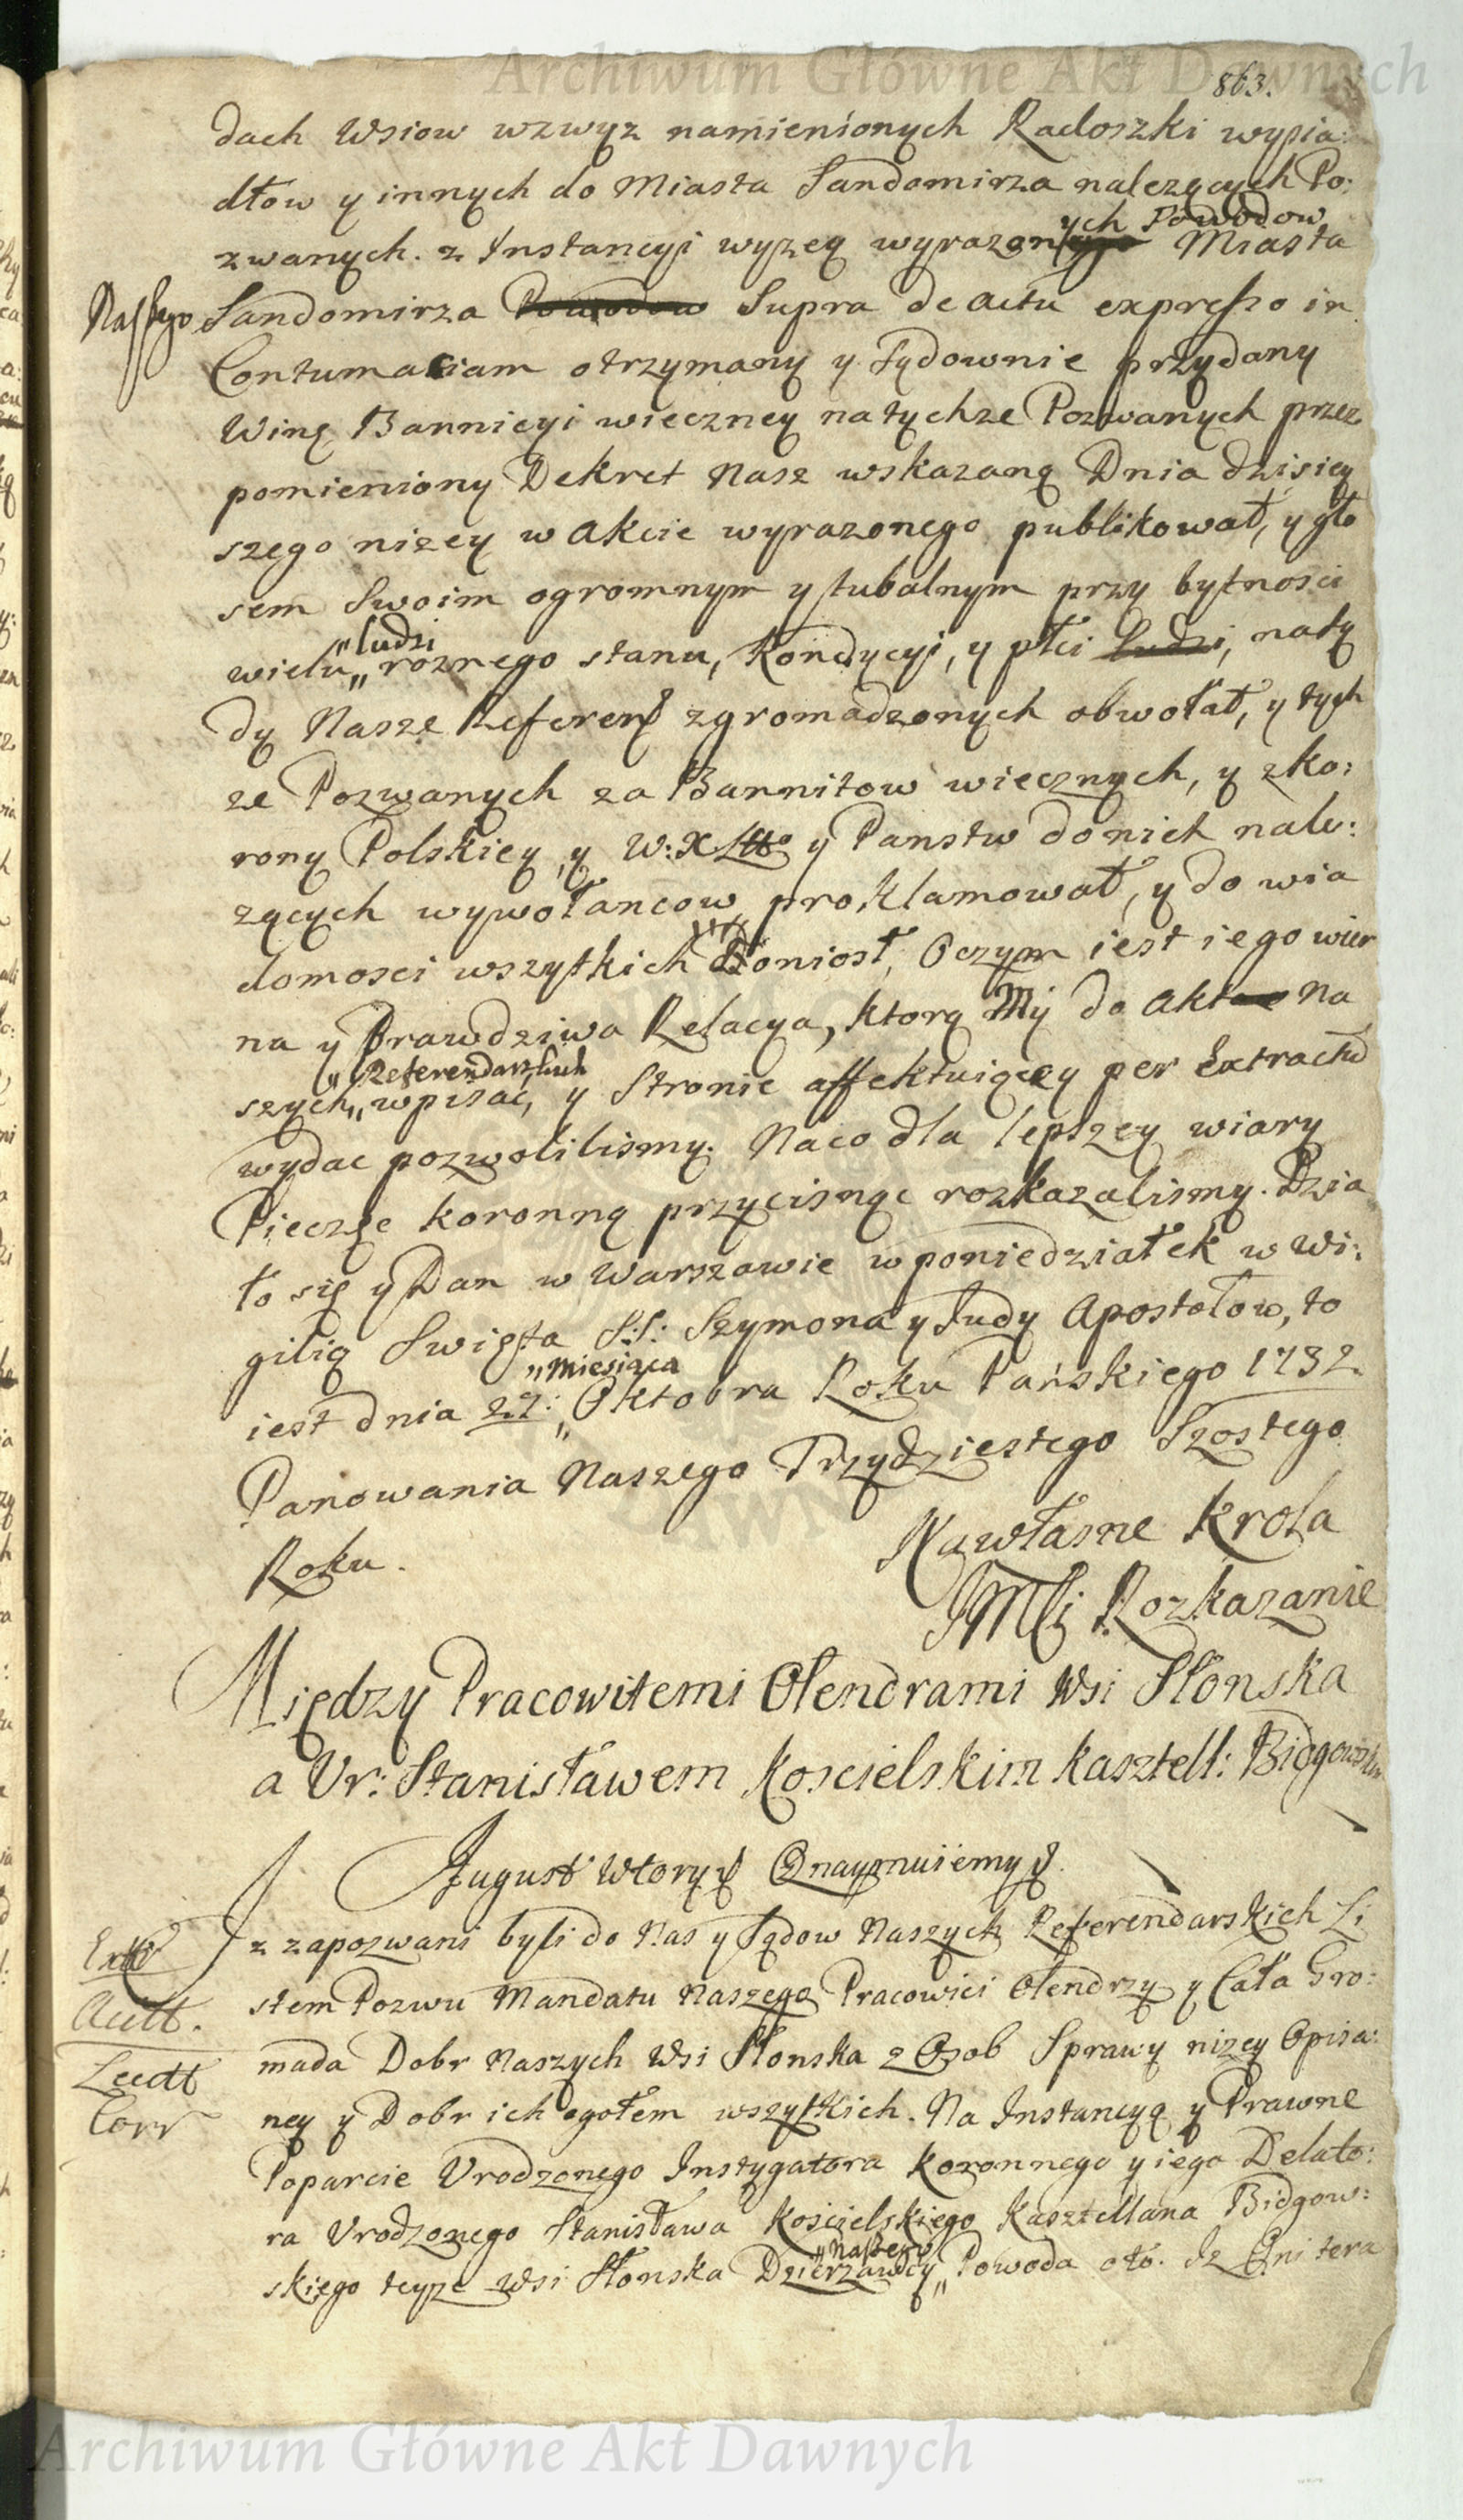 Archiwum Główne Akt Dawnych
863.
dach Wsiow wzwyz namienionych Radoszki wypia:
dłow y innych do Miasta Sandomirza nalezących Po:
ych Powodow
zwanych. z Instancyi wyzey wyrazon Miasta
Naszego Sandomirza Powodow Supra de actu expresso in
Contumaciam otrzymany y Sądownie przydany
Winę Bannicyi wieczney na tychze Pozwanych przez
pomieniony Dekret Nasz wskazaną Dnia dzisiey
szego nizey w akcie wyrazonego publikował, y gło
sem Swoim ogromnym y tubalnym przy bytnosci
„ludzi
wielu„ roznego stanu, Kondycyi, y płci Ludzi, na ty
dy Nasze Referen zgromadzonych obwołał, y tych
ze Pozwanych za Bannitow wiecznych, y z ko:
rony Polskiey y W: X Litto y Panstw do nich nale:
zących wywołancow proklamował, y do wia
domosci wszytkich Doniosł, Oczym iest iego wier
na y Prawdziwa Relacya, ktorą My do akt Na
„Referendarskich
szych„ wpisac, y Stronie affektuiącey per Extractu
wydac pozwolilismy. Naco dla lepszey wiary
Pieczęc koronną przycisnąc rozkazalismy. Dzia
ło się y Dan w Warszawie w poniedziałek w Wi:
gilią Swięta S:S: Szymona y Judy Apostołow, to
„Miesiąca
iest dnia 27: „Oktobra Roku Pańskiego 1732
Panowania Naszego Trzydziestego Szostego
Roku.
Na własne Krola
JMCi Rozkazanie
Między Pracowitemi Olendrami Wsi Słonska
a Ur: Stanisławem Koscielskim Kasztell: Bidgowskim
August Wtory Oznaymuiemy
Iz zapozwani byli do Nas y Sądow Naszych Referendarskich Li
Actt.
stem Pozwu Mandatu Naszego Pracowici Olendrzy y Cała Gro:
mada Dobr Naszych Wsi Słonska z Osob Sprawy nizey Opisa:
Lectt
Corr
ney y Dobr ich ogołem wszytkich. Na Instancyą y Prawne
Poparcie Urodzonego Instygatora Koronnego y iego Delato:
ra Urodzonego Stanisława Koscielskiego Kasztellana Bidgow:
„Naszego
skiego teyze Wsi Słonska Dzierzawcy„ Powoda oto. Iz Oni tera
Archiwum Główne Akt Dawnych